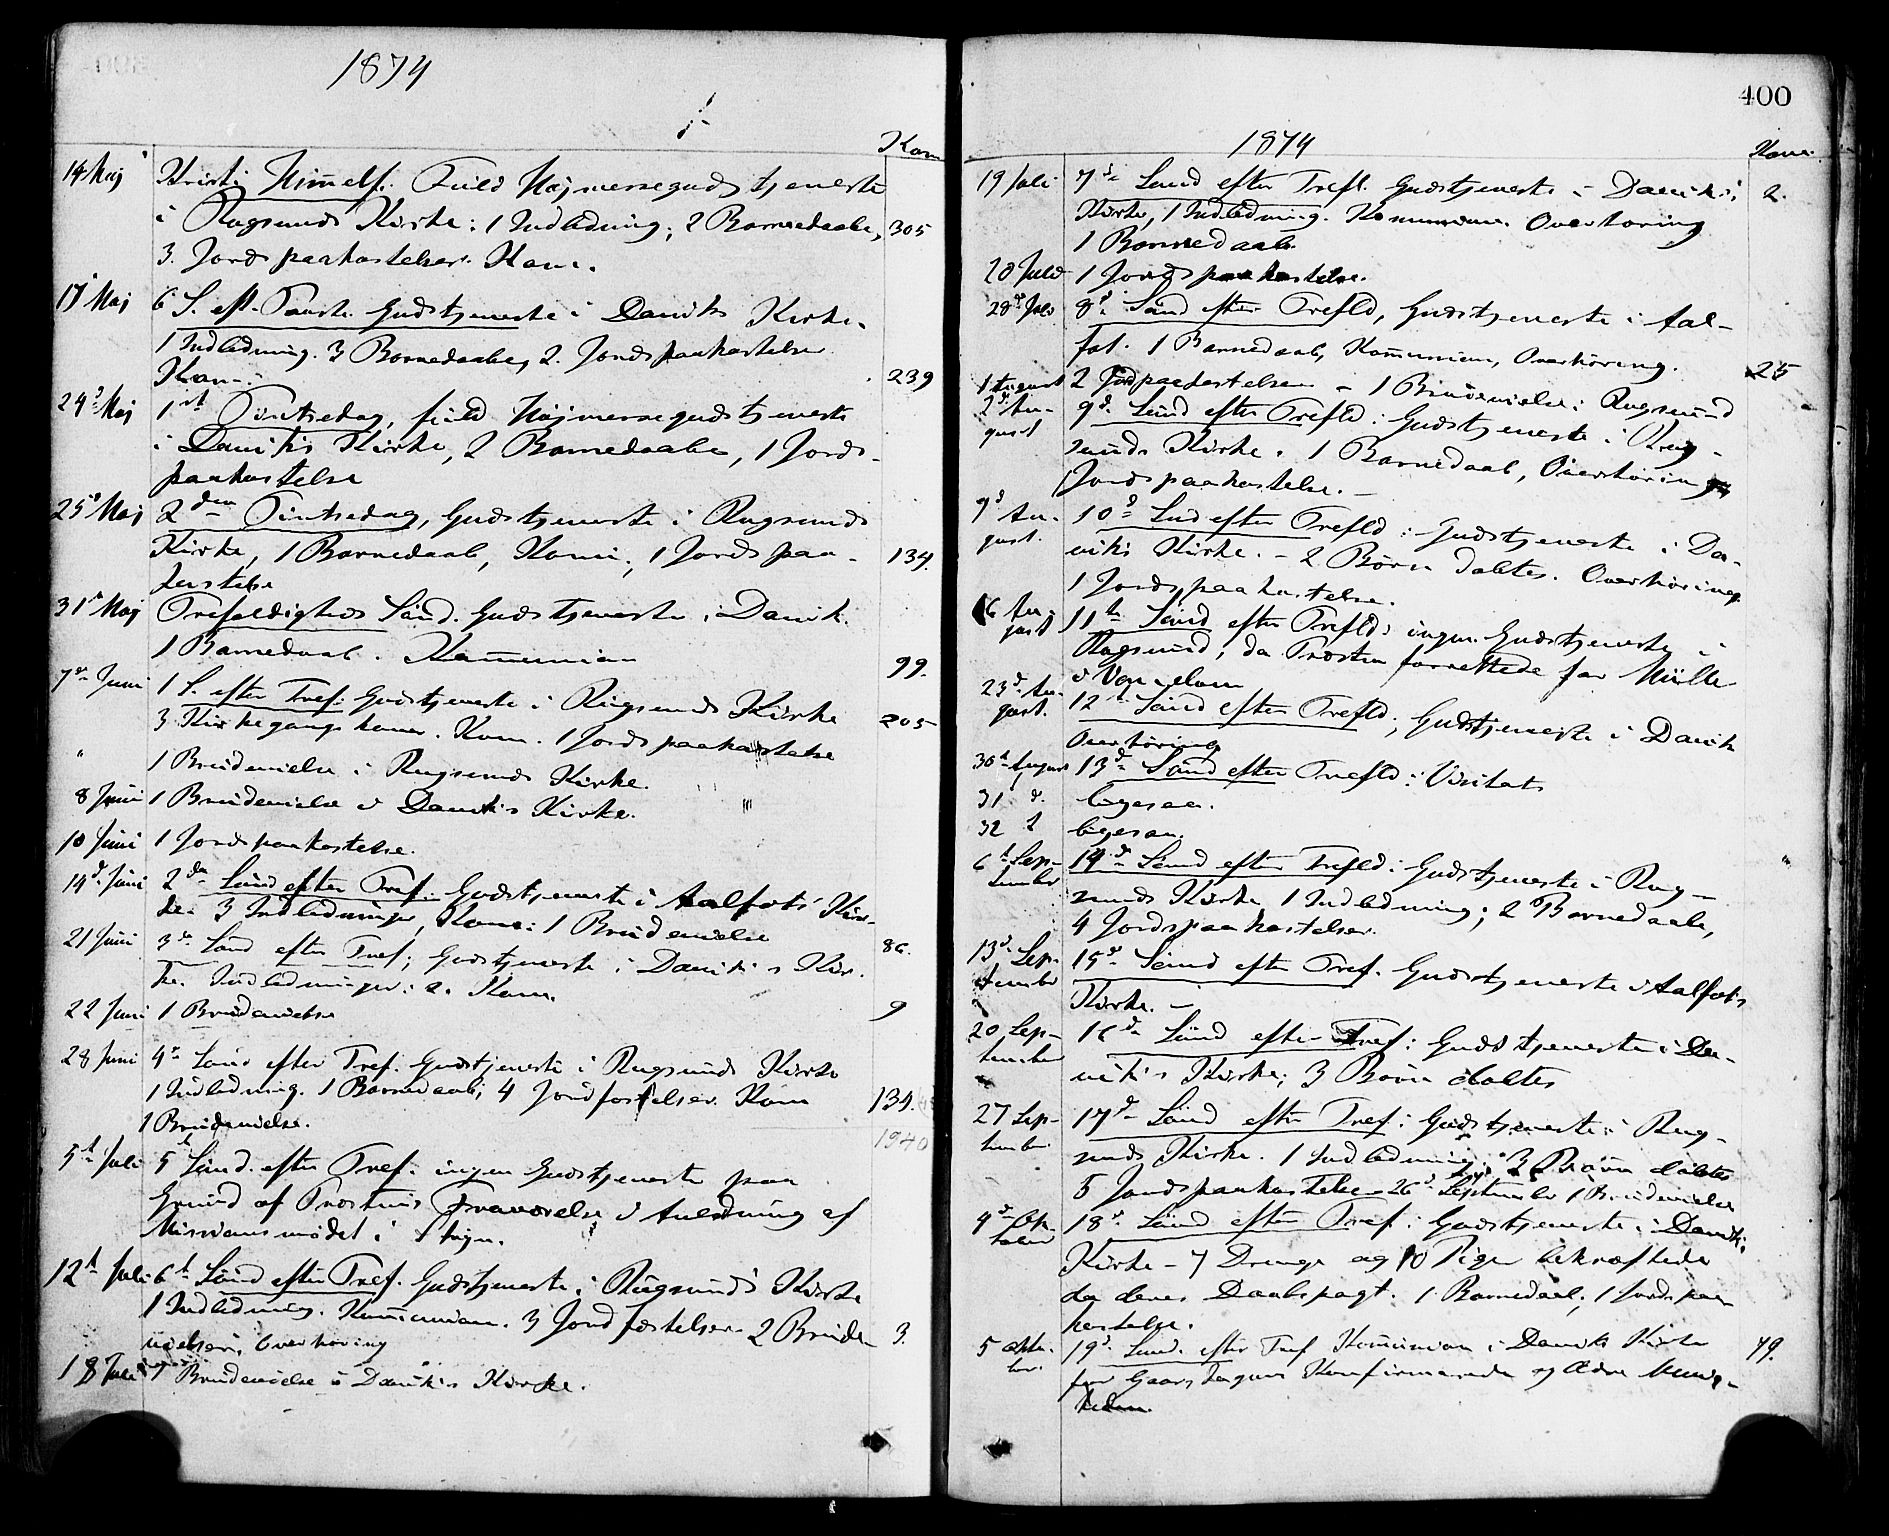 1874
Kom
14 Maj Kristi Himelf. Fuld Højmessegudstjeneste
i Rugsunds Kirke: 1 Indledning, 2 Barnedaabe, 305
3 Jordspaakastelser. Kom.
17 Maj 6 S. eft. Paaske Gudstjeneste i Daviks Kirke.
1 Indledning. 3 Barnedaabe, 2 Jordspaakastelser
Kom. 239
24 Maj 1st Pintsedag, fuld Højmessegudstjeneste
i Daviks Kirke, 2 Barnedaabe, 1 Jords-
paakastelse
25 Maj 2den Pintsedag, Gudstjeneste i Rugsunds
Kirke, 1 Barnedaab, Komi, 1 Jordspaa- 134.
kastelse
31 Maj Trefoldigheds Sønd. Gudstjeneste i Davik.
1 Barnedaab. Kommunion 99.
7de Juni 1 S. efter Tref. Gudstjeneste i Rugsunds Kirke
3 Kirkegangskoner. Kom. 1 Jordspaakastelse 205
" 1 Brudevielse i Rugsunds Kirke.
8 Juni 1 Brudevielse i Daviks Kirke.
10 Juni 1 Jordspaakastelse.
14d Juni 2den Sønd efter Tref. Gudstjeneste i Aalfots Kir-
ke. 3 Indledninger, Kom: 1 Brudevielse
21 Juni 3de Sønd efter Tref; Gudstjeneste i Daviks Kir- 86.
ke. Indledninger: 2. Kom.
22 Juni 1 Brudevielse 9
28 Juni 4de Sønd efter Tref. Gudstjeneste i Rugsunds Kirke
1 Indledning. 1 Barnedaab; 4 Jordfæstelser. Kom 134.
1 Brudevielse.
1940
5te Juli 5 Sønd. efter Tref. ingen Gudstjeneste paa
Grund af Provstens Fraværelse i Anledning af
Missionsmødet i
12t Juli 6t Sønd efter Tref. Gudstjeneste i Rugsunds Kirke
1 Indledning. Kommunion. 3 Jordfæstelser. 2 Brude- 3.
vielser, Overhøring
18 Juli 1 Brudevielse i Daviks Kirke.
400
1874
Kom.
19 Juli 7de Sønd efter Tref. Gudstjeneste i Daviks 2.
Kirke, 1 Indledning. Kommunion. Overhøring
1 Barnedaab.
20 Juli 1 Jordspaakastelse.
28 Juli 8d Sønd efter Trefld, Gudstjeneste i Aal-
fot. 1 Barnedaab, Kommunion, Overhøring. 25
1 August 2 Jordpaakastelser - 1 Brudevielse i Rugsund
2d Au- 9d Sønd efter Trefld: Gudstjeneste i Rug-
gust sunds Kirke. 1 Barnedaab, Overhøring
Jordspaakastelse. -
9d Au- 10d Sønd efter Trefld: Gudstjeneste i Da-
gust. viks Kirke. - 2 Børn døbtes. Overhøring
1 Jordspaakastelse.
16 Au- 11te Sønd efter Trefld: ingen Gudstjeneste i
gust Rugsund, da Provsten forrettede for Müller
i
23d Au- 12 Sønd efter Trefld; Gudstjeneste i Davik
gust. Overhøring
30t August 13de Sønd efter Trefld: Visitats
31 d. ligesaa.
32 d ligesaa.
6t Sep- 14de Sønd efter Trefld: Gudstjeneste i Rug-
tember sunds Kirke 1 Indledning; 2 Barnedaabe,
4 Jordspaakastelser.
13d Sep- 15d Sønd efter Tref. Gudstjeneste i Aalfots
tember Kirke. -
20 Sep- 16de Sønd efter Tref: Gudstjeneste i Da-
tember viks Kirke; 3 Børn døbtes
27 Sep- 17de Sønd efter Tref: Gudstjeneste i Rug-
tember sunds Kirke. 1 Indledning, 3 Børn døbtes
5 Jordspaakastelse - 26d September 1 Brudevielse
4d 18d Sønd efter Tref: Gudstjeneste i Daviks
Kirke - 7 Drenge og 10 Piger bekræftede
da deres Daabspagt. 1 Barnedaab, 1 Jordspaa-
kastelse.
5 Okto- 19d Sønd. efter Tref Kommunion i Daviks Kirke 79.
ber. for Gaarsdagens Konfirmerede og Menig-
heden.